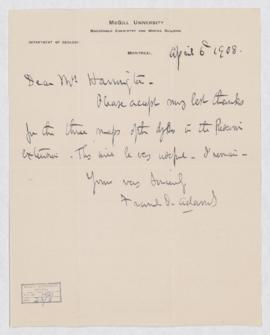 McGILL UNIVERSITY
MACDONALD CHEMISTRY AND MINING BUILDING
DEPARTMENT OF GEOLOGY
MONTREAL,
April 6th 1908.
Dear Mrs Harrington -
Please accept my best thanks
for the three maps of the dykes in the Reservoir
extension. This will be very useful. I remain -
Yours very sincerely
Frank D. Adams